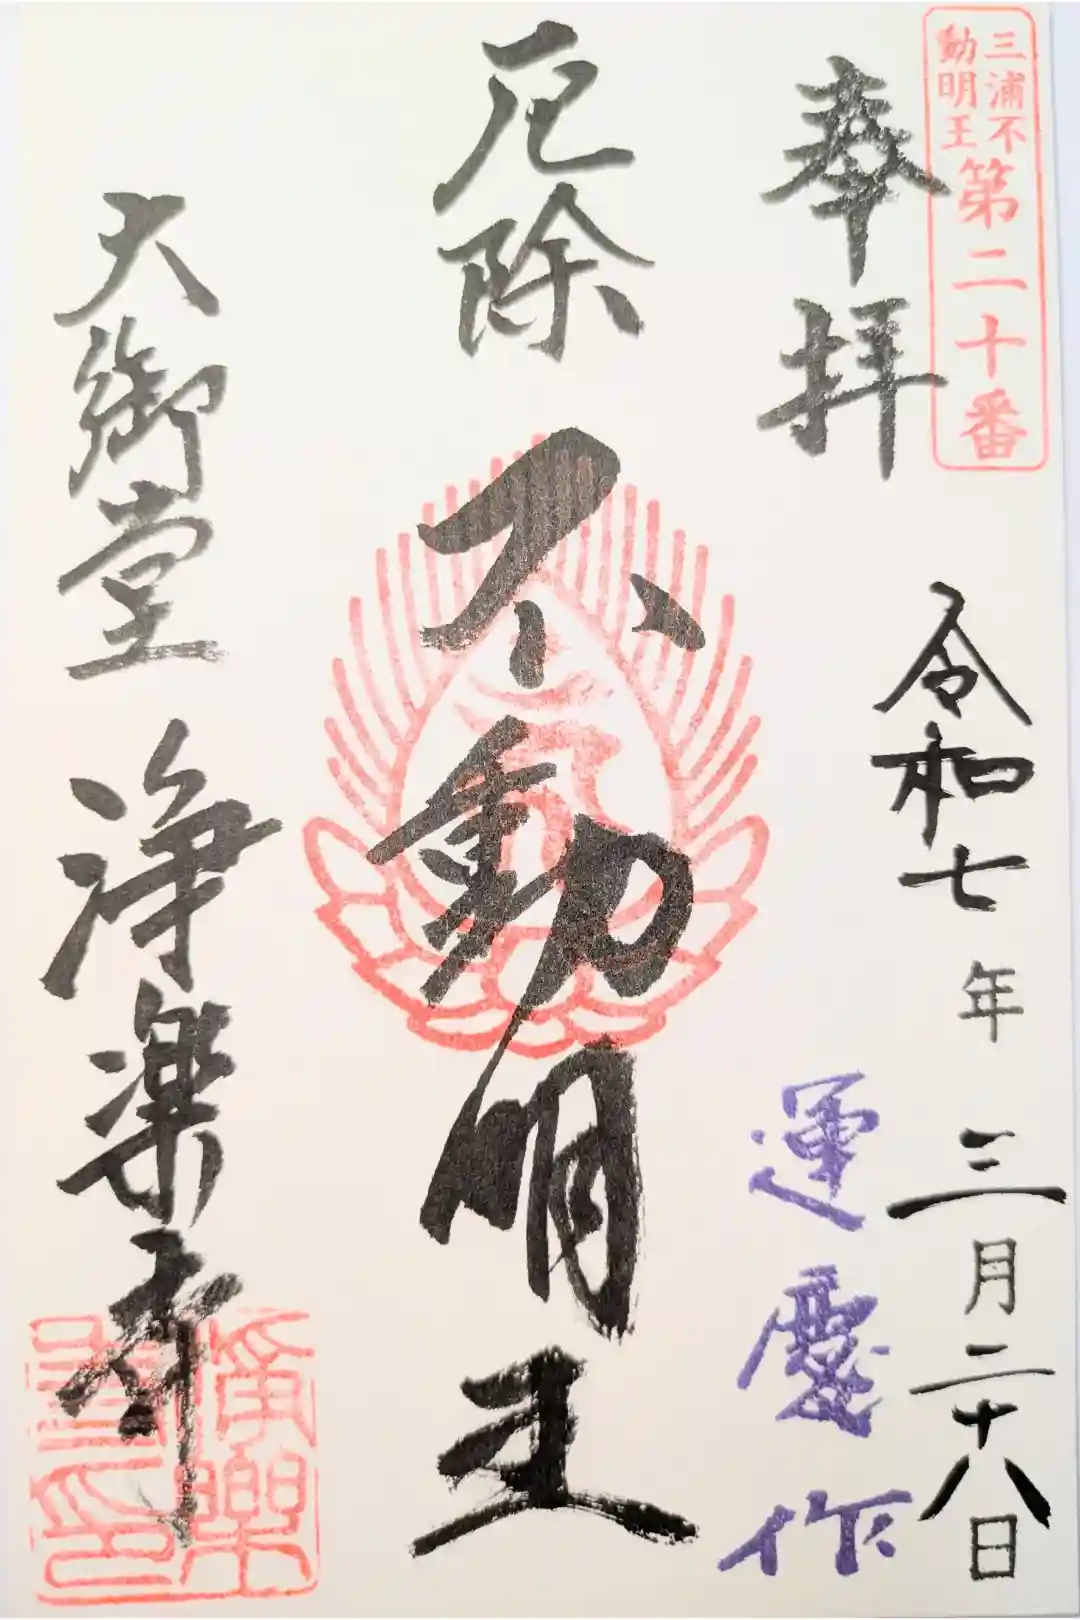 三浦不動明王 第二十番
奉拝
令和七年 三月二十八日
運慶作
厄除 不動明王
大御堂 浄楽寺